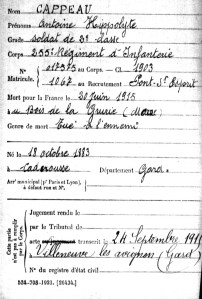 Nom CAPPEAU
Prénoms Antoine Hyppolyte
Grade soldat de 2e classe
Corps 255e Régiment d'Infanterie
N° au Corps. — Cl. 1903
Matricule. 1047 au Recrutement Pont-St Esprit
Mort pour la France le 30 juin 1915
à Bois de la Grurie (Marne)
Genre de mort Tué à l'ennemi
Né le 18 octobre 1883
à Caderousse Département Gard
Arrt municipal (pr Paris et Lyon),
à défaut rue et N°.
Cette partie
n'est pas à remplir
par le Corps.
Jugement rendu le
par le Tribunal de
acte transcrit le 24 Septembre
à Villeneuve les avignon (Gard)
N° du registre d'état civil
534-708-1921. [26434.]